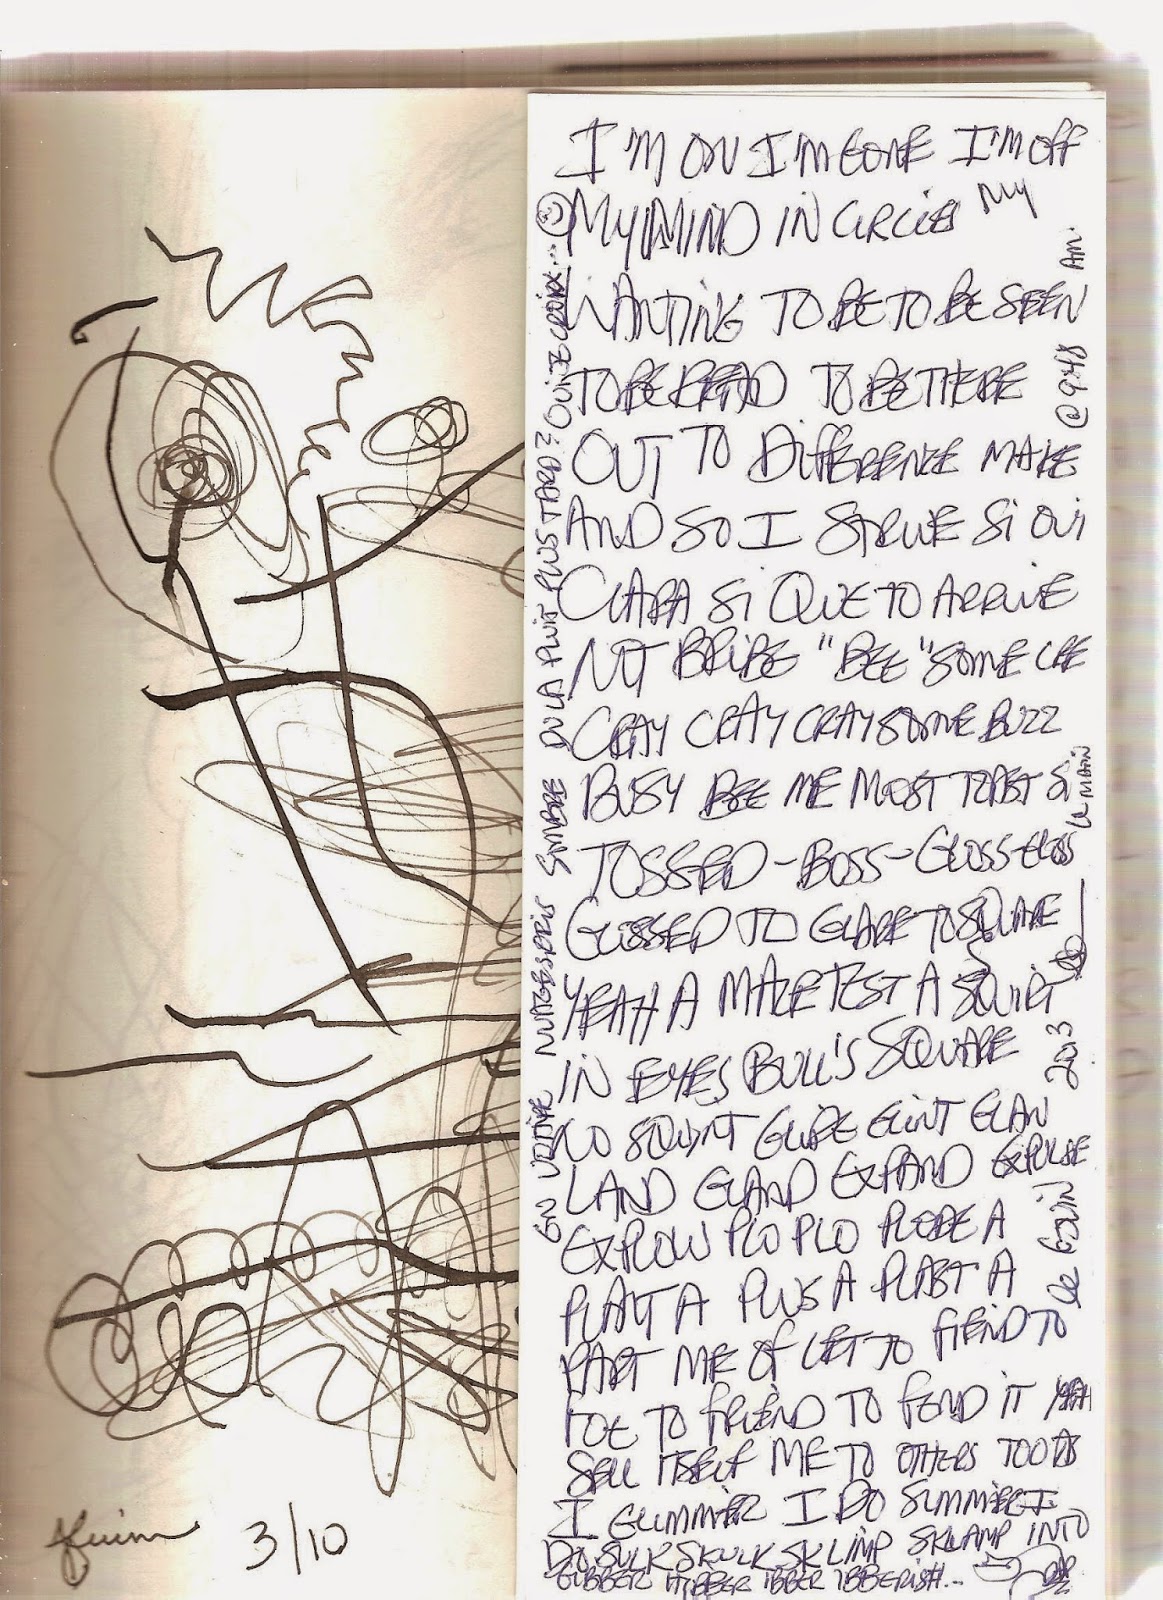 I'M ON I'M GONE I'M OFF
MY MIND IN CIRCLES MY
WANTING TO BE TO BE SEEN
TO BE READ TO BE THERE
OUT TO DIFFERENCE MAKE
AND SO I STRIVE SI OUI
CLARA SI QUE TO ARRIVE
NOT BRIBE "BEE" SOME LEE
CRAY CRAY CRAY SOME BUZZ
BUSY BEE ME MOST TOAST SI
TOSSED-BOSS-GLOSS GLOSS
GLISSED TO GLARE TO SQUARE
YEAH A MAKE TEST A SQUIRT
IN EYES BULL'S SQUARE
NO SQUINT GLIDE GLINT GLAN
LAND GLAND EXPAND EXPULSE
EXPLOW PLO PLO PLODE A
PLAY A PLUS A PLAST A
PART ME OF LET TO FIEND TO
FOE TO FRIEND TO FEND IT YEAH
SELL ITSELF ME TO OTHERS TOO AS
I GLIMMER I DO SUMMER I
DO SULK SKULK SKLIMP SKLAMP INTO
GIBBER HIBBER IBBER IBBERISH...
@ 9:48 AM.
LE MATIN
2013
LE GJUIN
DU LA PLUIT PLUS TARD?
3/10